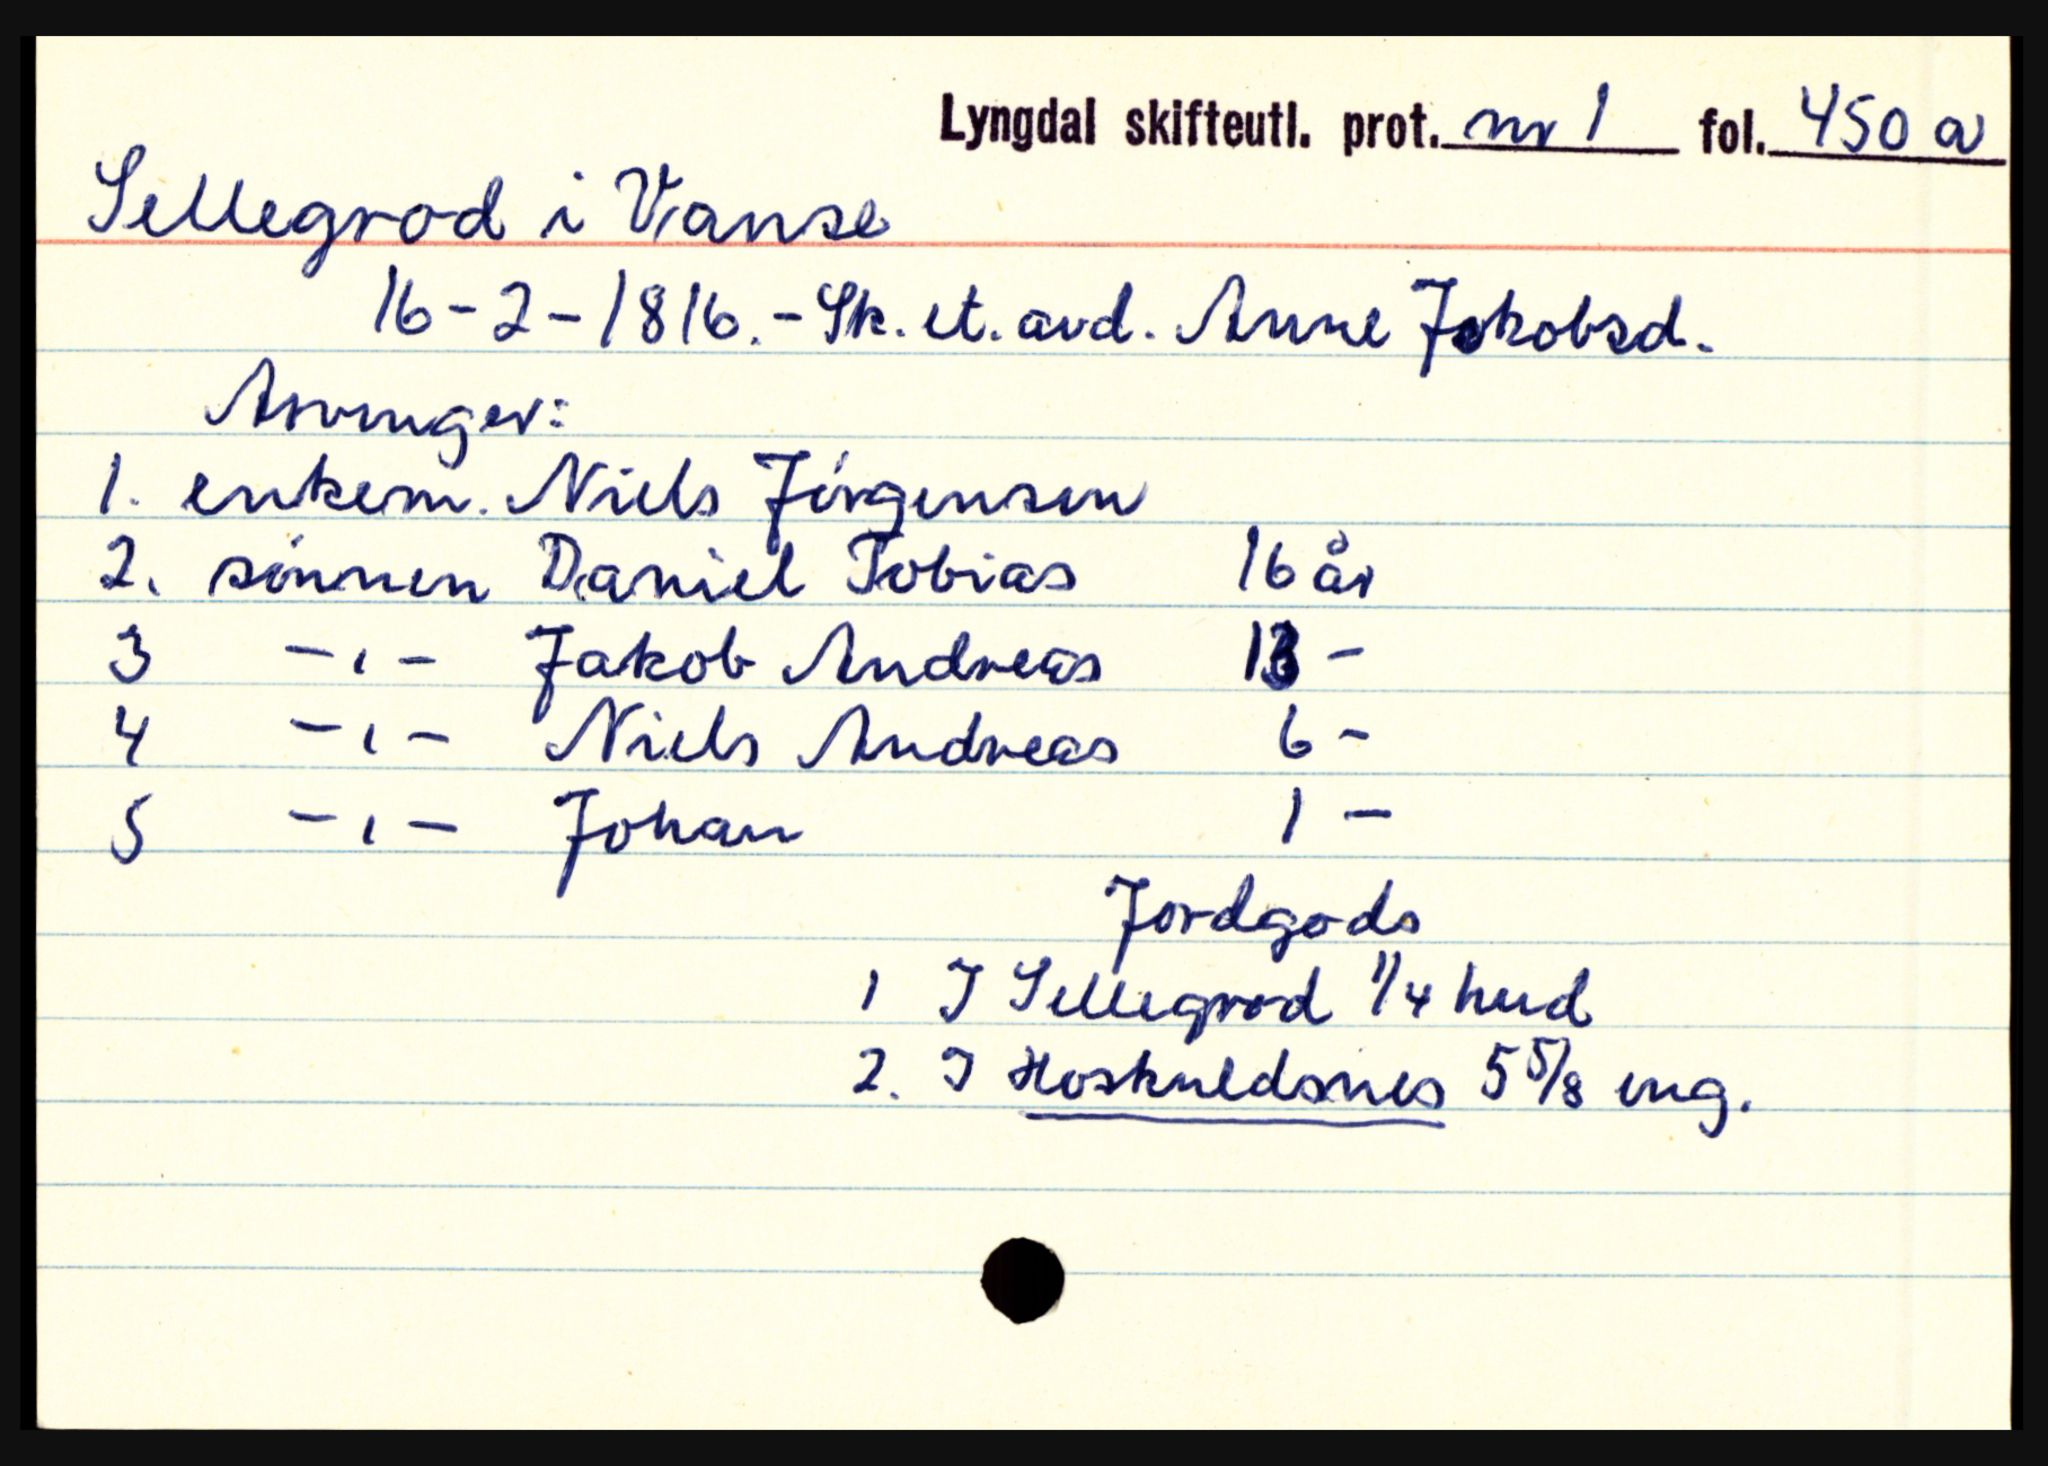 Lyngdal skifteutl. prot. nr 1 fol. 450 a
Sellegrod i Vanse
16-2-1816. - Sk. et. avd. Anne Jakobsd.
Arvinger:
1. enkem. Niels Jörgensen
2. sönnen Daniel Tobias 16 år
3 -,- Jakob Andreas 13 -
4 -,- Niels Andreas 6 -
5 -,- Johan 1 -
Jordgods
1 I Sellegrod 1/4 hud
2. I Hoskuldsnes 5 5/8 eng.